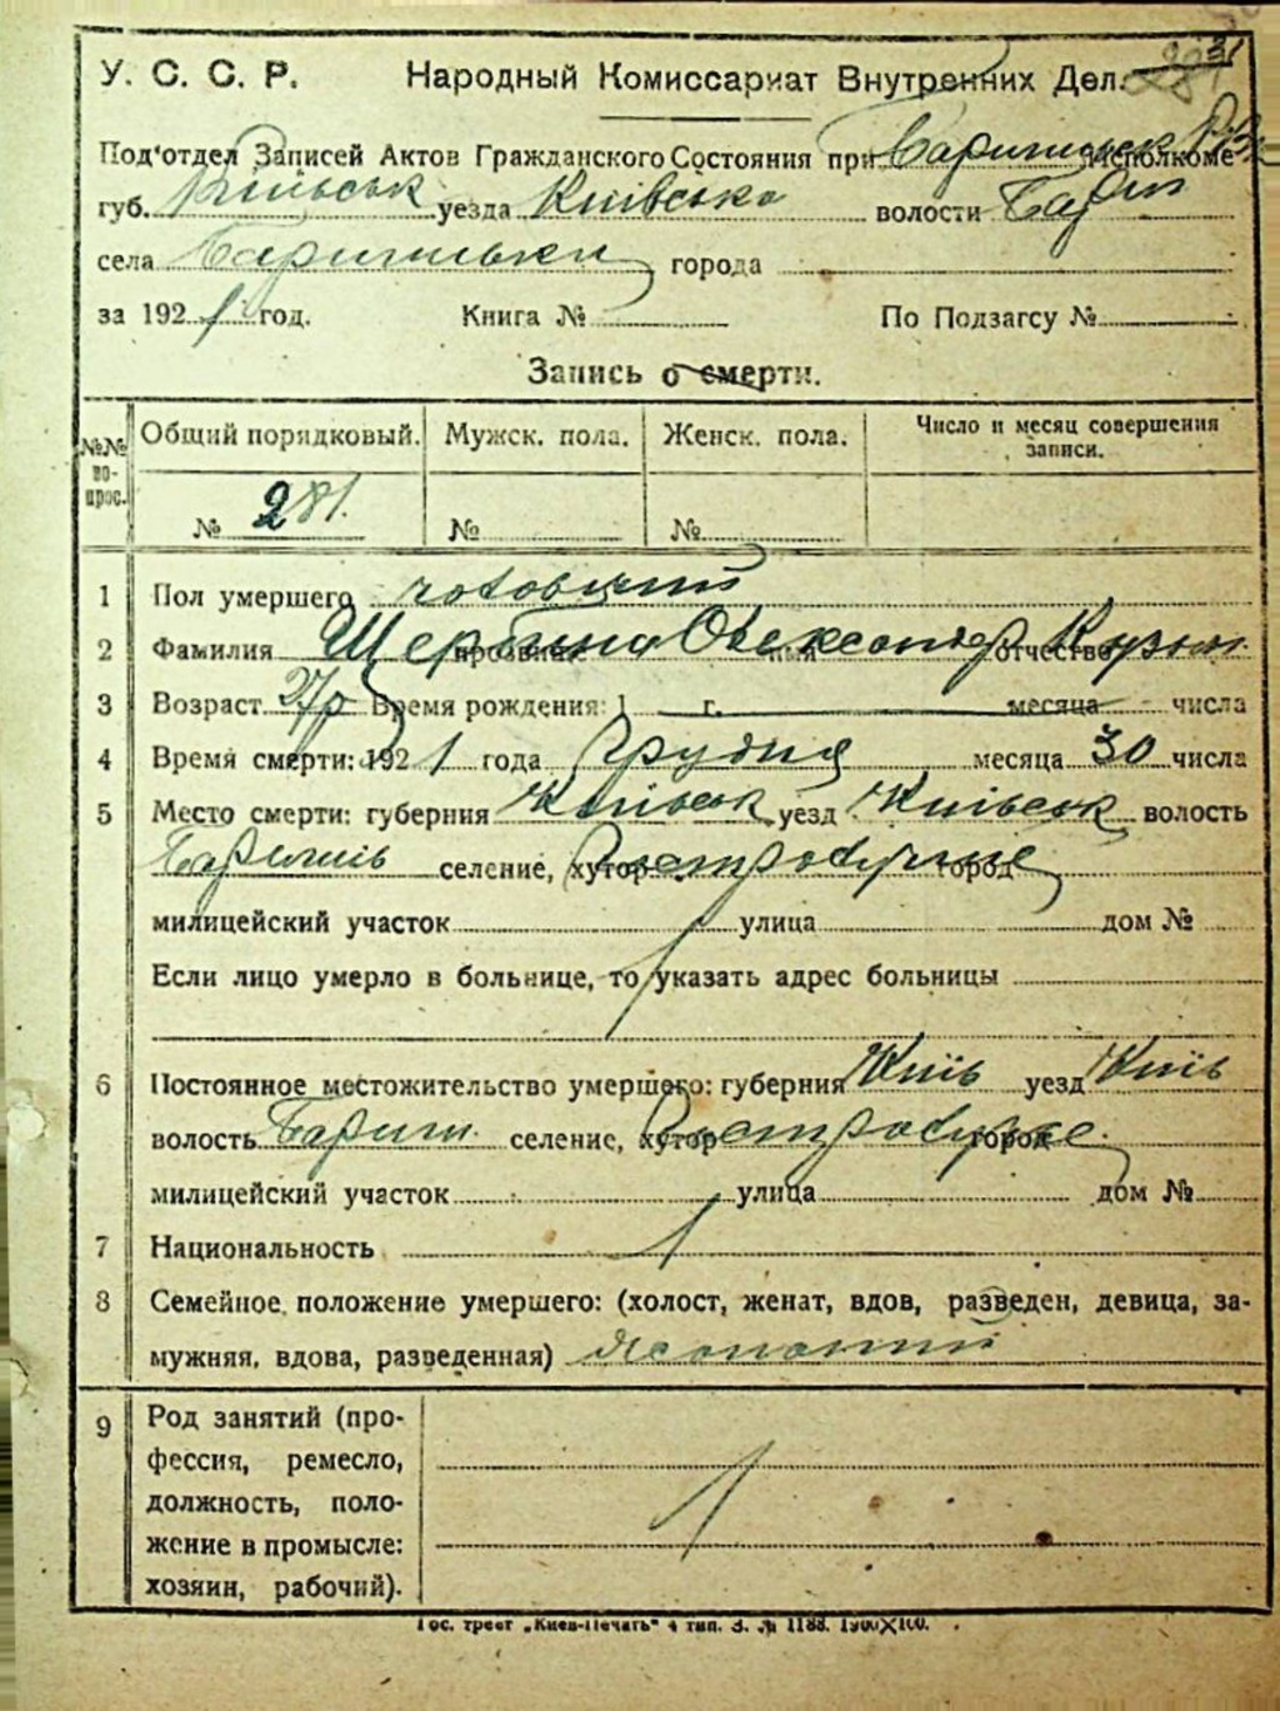 31
У. С. С. Р. Народный Комиссариат Внутренних Дел.
Под'отдел Записей Актов Гражданского Состояния при исполкоме
губ. уезда Київська волости Бариш
села города
за 1921 год. Книга № По Подзагсу №
Запись о смерти.
№№ во-прос. Общий порядковый. Мужск. пола. Женск. пола. Число и месяц совершения записи.
№ 281. № №
1 Пол умершего чоловічий
2 Фамилия прозвище имя отчество Щербина Олександр Кузьм.
3 Возраст 27 р Время рождения: 1 г. месяца числа
4 Время смерти: 1921 года Грудня месяца 30 числа
5 Место смерти: губерния Київськ уезд Київськ волость
селение, хутор город
милицейский участок улица дом №
Если лицо умерло в больнице, то указать адрес больницы
6 Постоянное местожительство умершего: губерния Київ уезд Київ
волость Бариш. селение, хутор город
милицейский участок улица дом №
7 Национальность
8 Семейное положение умершего: (холост, женат, вдов, разведен, девица, за-
мужняя, вдова, разведенная)
9 Род занятий (про-
фессия, ремесло,
должность, поло-
жение в промысле:
хозяин, рабочий).
Гос. трест „Киев-Печать" 4 тип. З. № 1188. 1900X100.